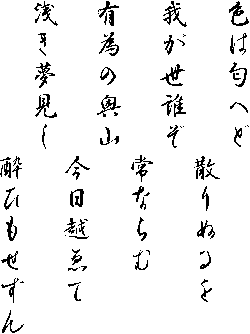 色は匂へど
散りぬるを
我が世誰ぞ
常ならむ
有為の奥山
今日越えて
浅き夢見し
酔ひもせずん